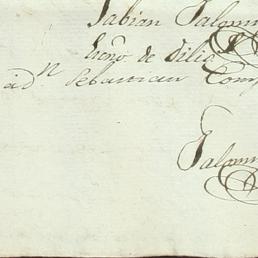 Fabian Palom
Escno de Dilig
à dn Sebastian Com
Palom